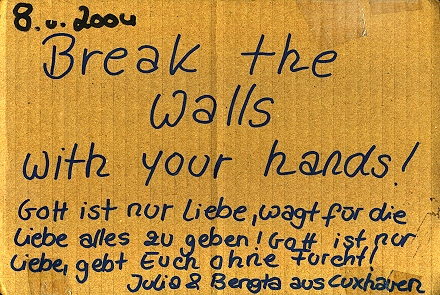 8. u. 2004
Break the
Walls
with your hands!
Gott ist nur Liebe, wagt für die
Liebe alles zu geben! Gott ist nur
Liebe, gebt Euch ohne Furcht!
Julia & Bengta aus Cuxhaven